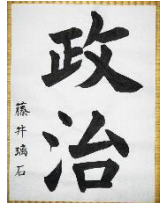 政治
藤井璃石